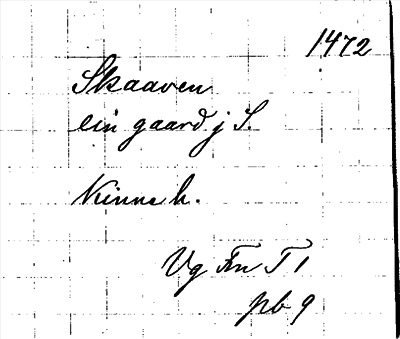 1472
Skaaven
ein gaard j S.
Kinne h.
Vg Fn T 1
pb 9